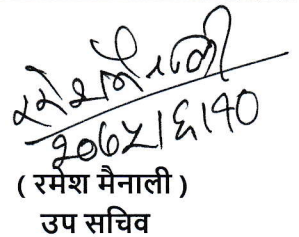 रमेश मैनाली
२०७५।६।१०
( रमेश मैनाली )
उप सचिव